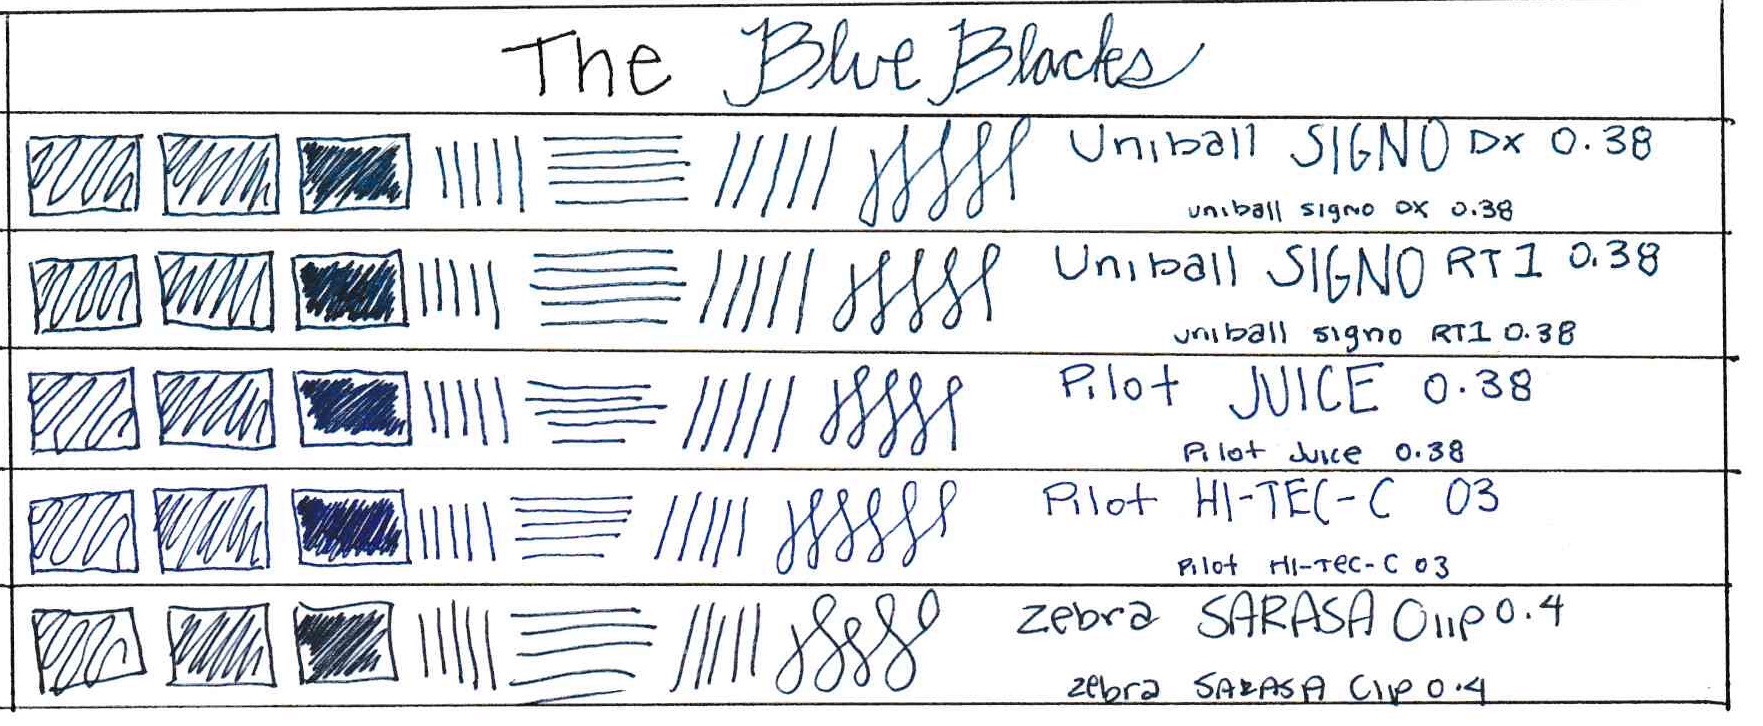 The Blue Blacks
Uniball SIGNO DX 0.38
uniball signo DX 0.38
Uniball SIGNO RT1 0.38
uniball signo RT1 0.38
Pilot JUICE 0.38
Pilot Juice 0.38
Pilot HI-TEC-C 03
Pilot HI-TEC-C 03
zebra SARASA Clip 0.4
zebra SARASA Clip 0.4